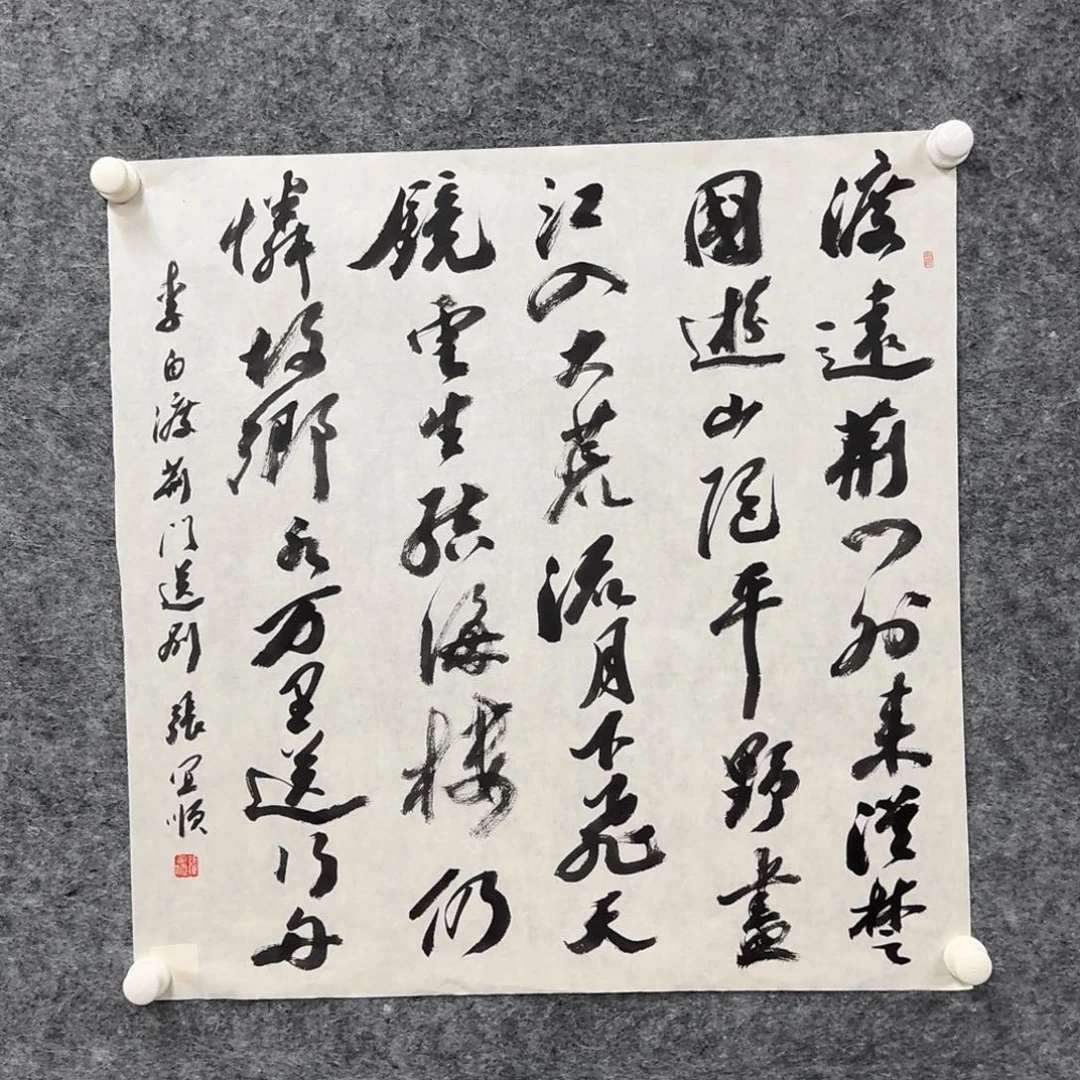 渡遠荊门外来從楚
國遊山隨平野盡
江入大荒流月下飛天
鏡雲生結海樓仍
憐故鄉水万里送行舟
李白渡荊门送别 張宜順